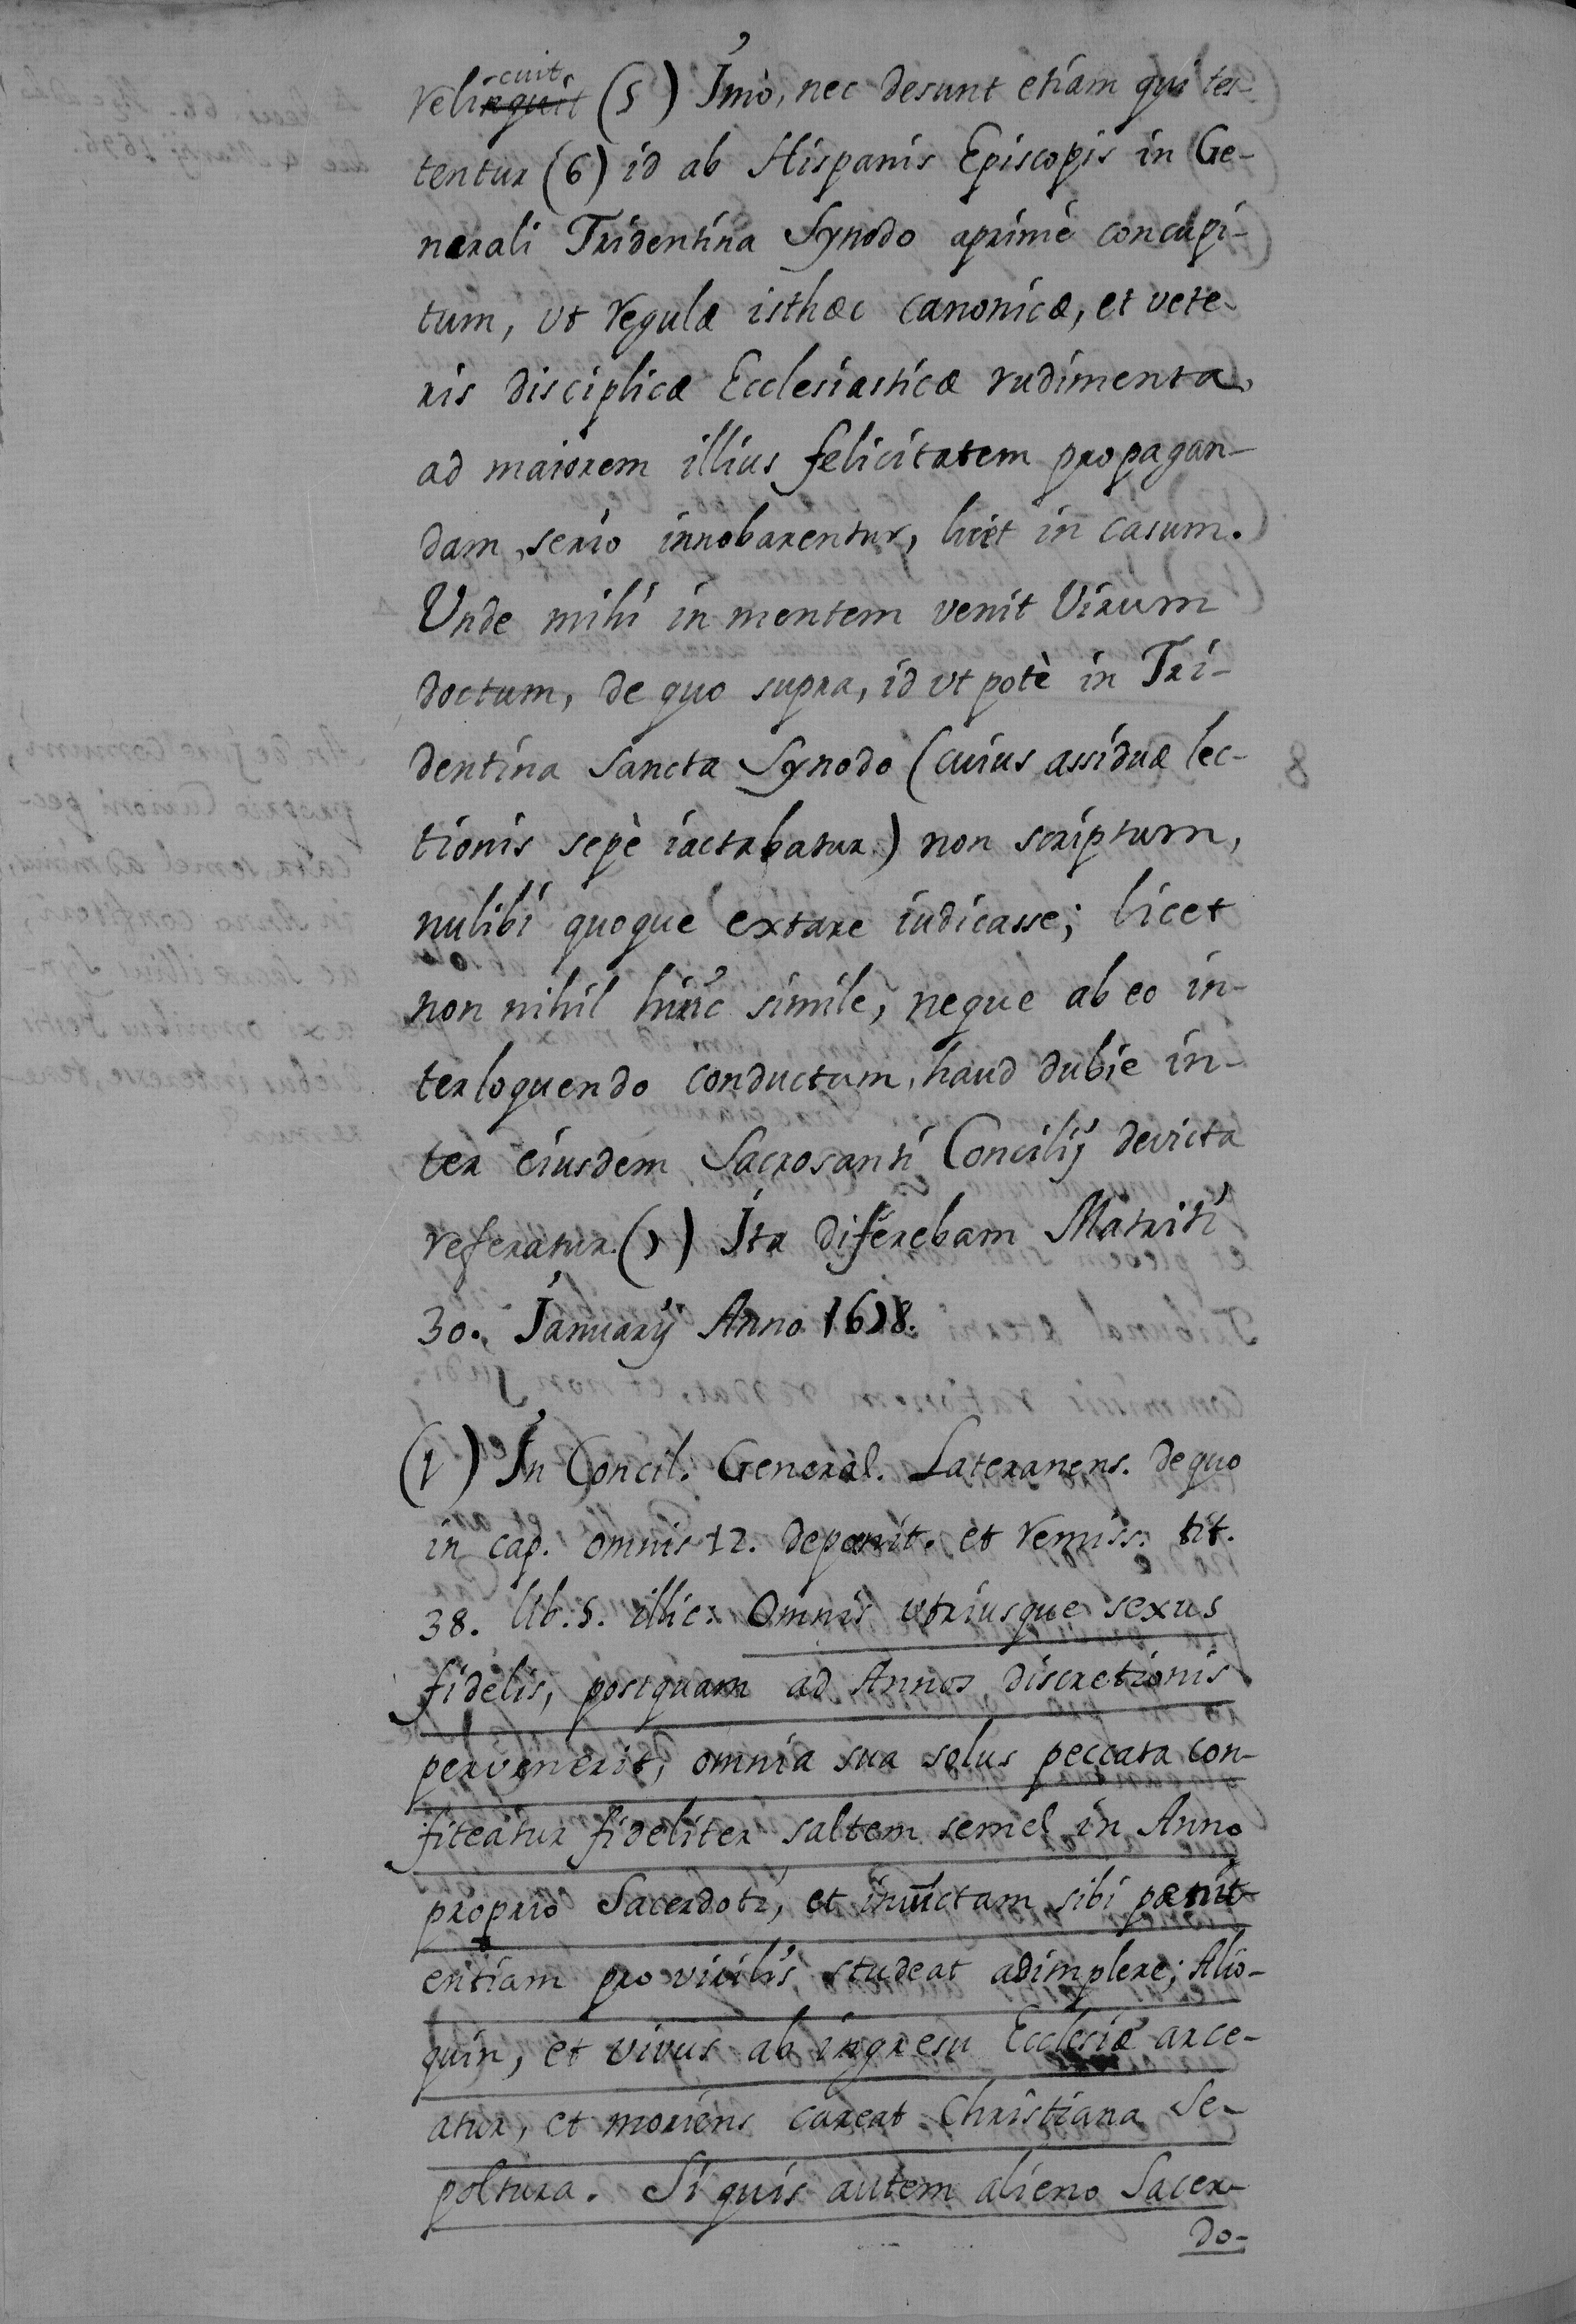 relinquit cuit (5) Imò, nec desunt etiam qui tes-
tentur (6) id ab Hispanis Episcopis in Ge-
nerali Tridentina Synodo aprimè concupi-
tum, ut regulæ isthæc canonicæ, et vete-
ris disciplicæ Ecclesiasticæ rudimenta
ad maiorem illius felicitatem propagan-
dam, serio innobarentur, licèt in casum.
Unde mihi in mentem venit Virum
doctum, de quo supra, id ut potè in Tri-
dentina Sancta Synodo (cuius assiduæ lec-
tionis sepè iactabatur) non scriptum,
nulibi quoque extare iudicasse; licet
non nihil huic simile, neque ab eo in-
terloquendo conductum, haud dubie in-
ter eiusdem Sacrosanti Concilij devicta
referatur. (7) Ita diferebam Matriti
30. Ianuarij Anno 1678.
(1) In Concil. General. Lateranens. de quo
in cap. omnis 12. de pœnit. et remiss. tit.
38. lib. 5. illic: Omnis utriusque sexus
fidelis, postquam ad Annos discretionis
pervenerit, omnia sua solus peccata con-
fiteatur fideliter saltem semel in Anno
proprio Sacerdoti, et iniunctam sibi pœnit-
entiam pro virilis studeat adimplere; Alio-
quin, et vivus ab ingresu Ecclesiæ arce-
atur, et moriens careat Christiana Se-
poltura. Si quis autem alieno Sacer-
do-